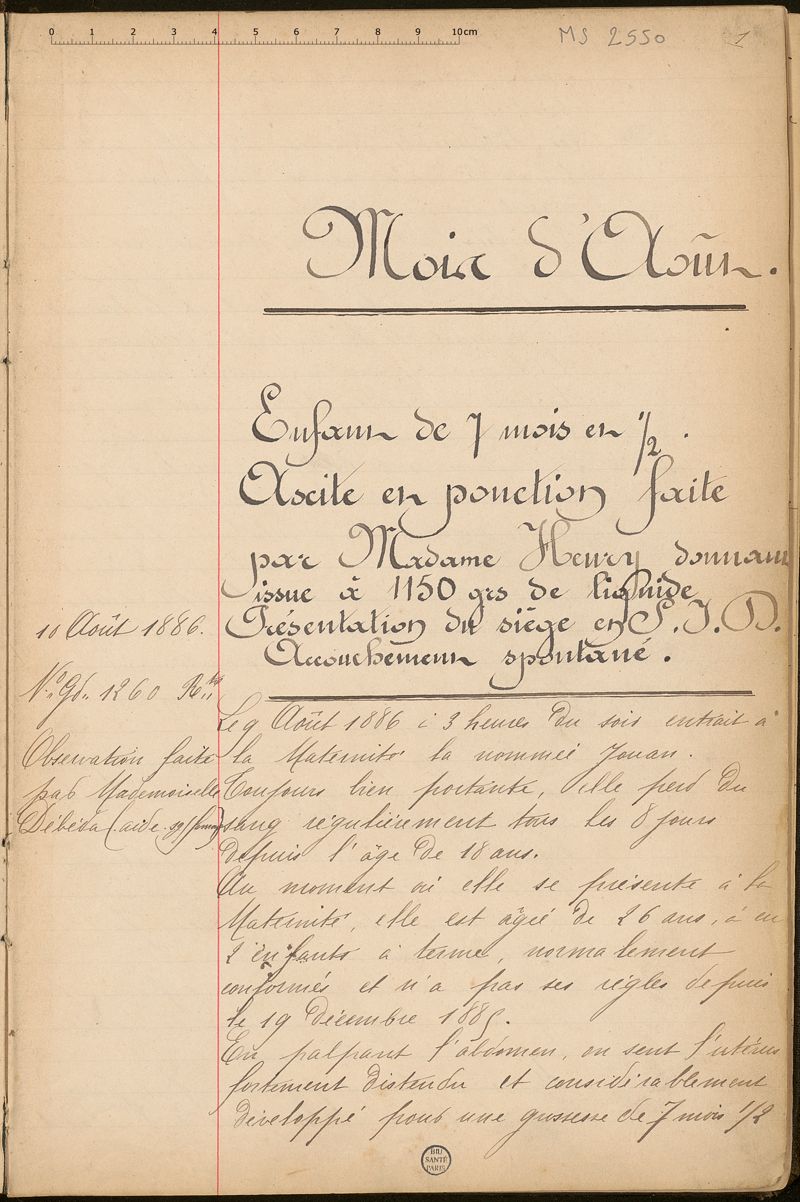 0 1 2 3 4 5 6 7 8 9 10 cm
MS 2550
1
Mois d'Août.
Enfant de 7 mois et 1/2.
Ascite et ponction faite
par Madame Henry donnant
issue à 1150 grs de liquide
Présentation du siège en S.I.D.
Accouchement spontané.
10 Août 1886.
No. Gd. 1260
Observation faite
par Mademoiselle
Débéda (aide
Le 9 Août 1886 à 3 heures du soir entrait à
la Maternité la nommée Jouan.
Toujours bien portante, elle perd du
sang régulièrement tous les 8 jours
depuis l'âge de 18 ans.
Au moment où elle se présente à la
Maternité, elle est âgée de 26 ans, à eu
2 enfants à terme, normalement
conformés et n'a pas ses règles depuis
le 19 Décembre 1885.
En palpant l'abdomen, on sent l'utérus
fortement distendu et considérablement
développé pour une grossesse de 7 mois 1/2
BIU
SANTÉ
PARIS